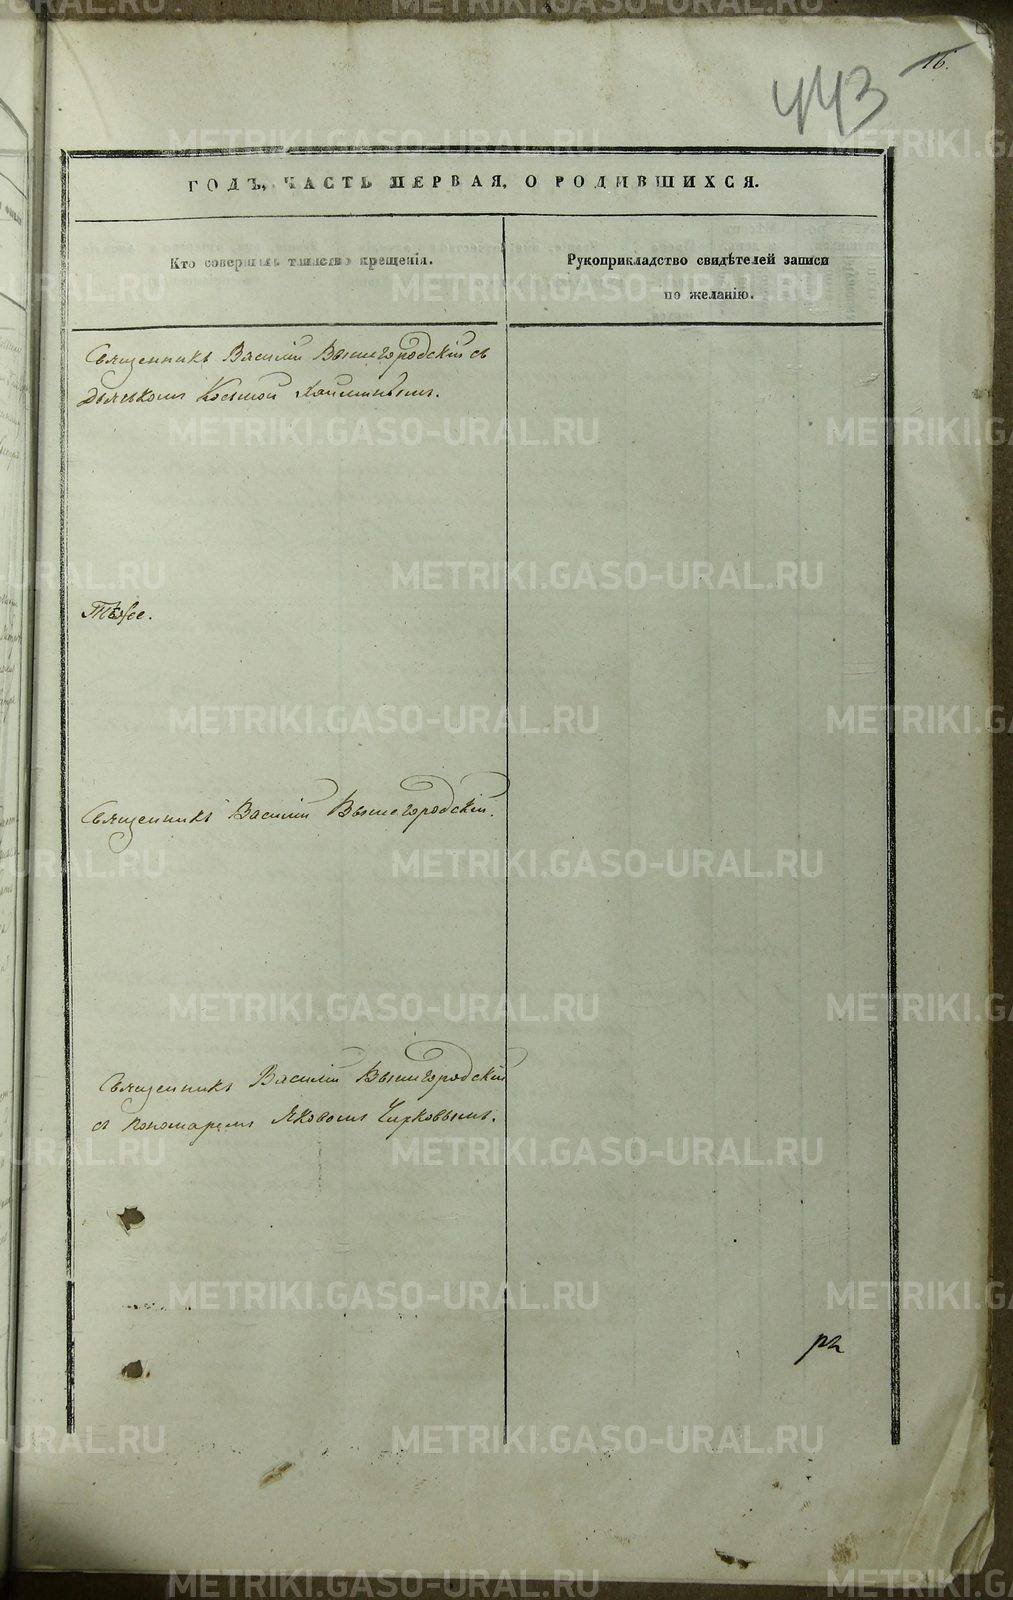 16.
443
ГОДЪ, ЧАСТЬ ПЕРВАЯ, О РОДИВШИХСЯ.
Кто совершалъ таинство крещенія.
Рукоприкладство свидѣтелей записи
по желанію.
Священникъ Василій Вышегородскій съ
дьячкомъ Космой
Тѣже.
Священникъ Василій Вышегородскій.
Священникъ Василій Вышегородскій
съ пономаремъ Яковомъ Чирковымъ.
METRIKI.GASO-URAL.RU